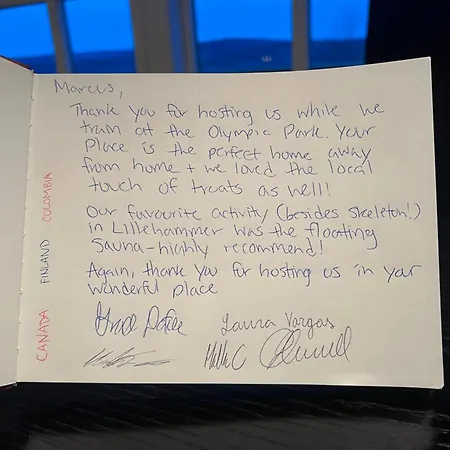 Marcus,
Thank you for hosting us while we
train at the Olympic Park. Your
place is the perfect home away
from home + we loved the local
touch of treats as well!
Our favourite activity (besides skeleton!)
in Lillehammer was the floating
sauna-highly recommend!
Again, thank you for hosting us in your
wonderful place
Laura Vargas
CANADA FINLAND COLOMBIA